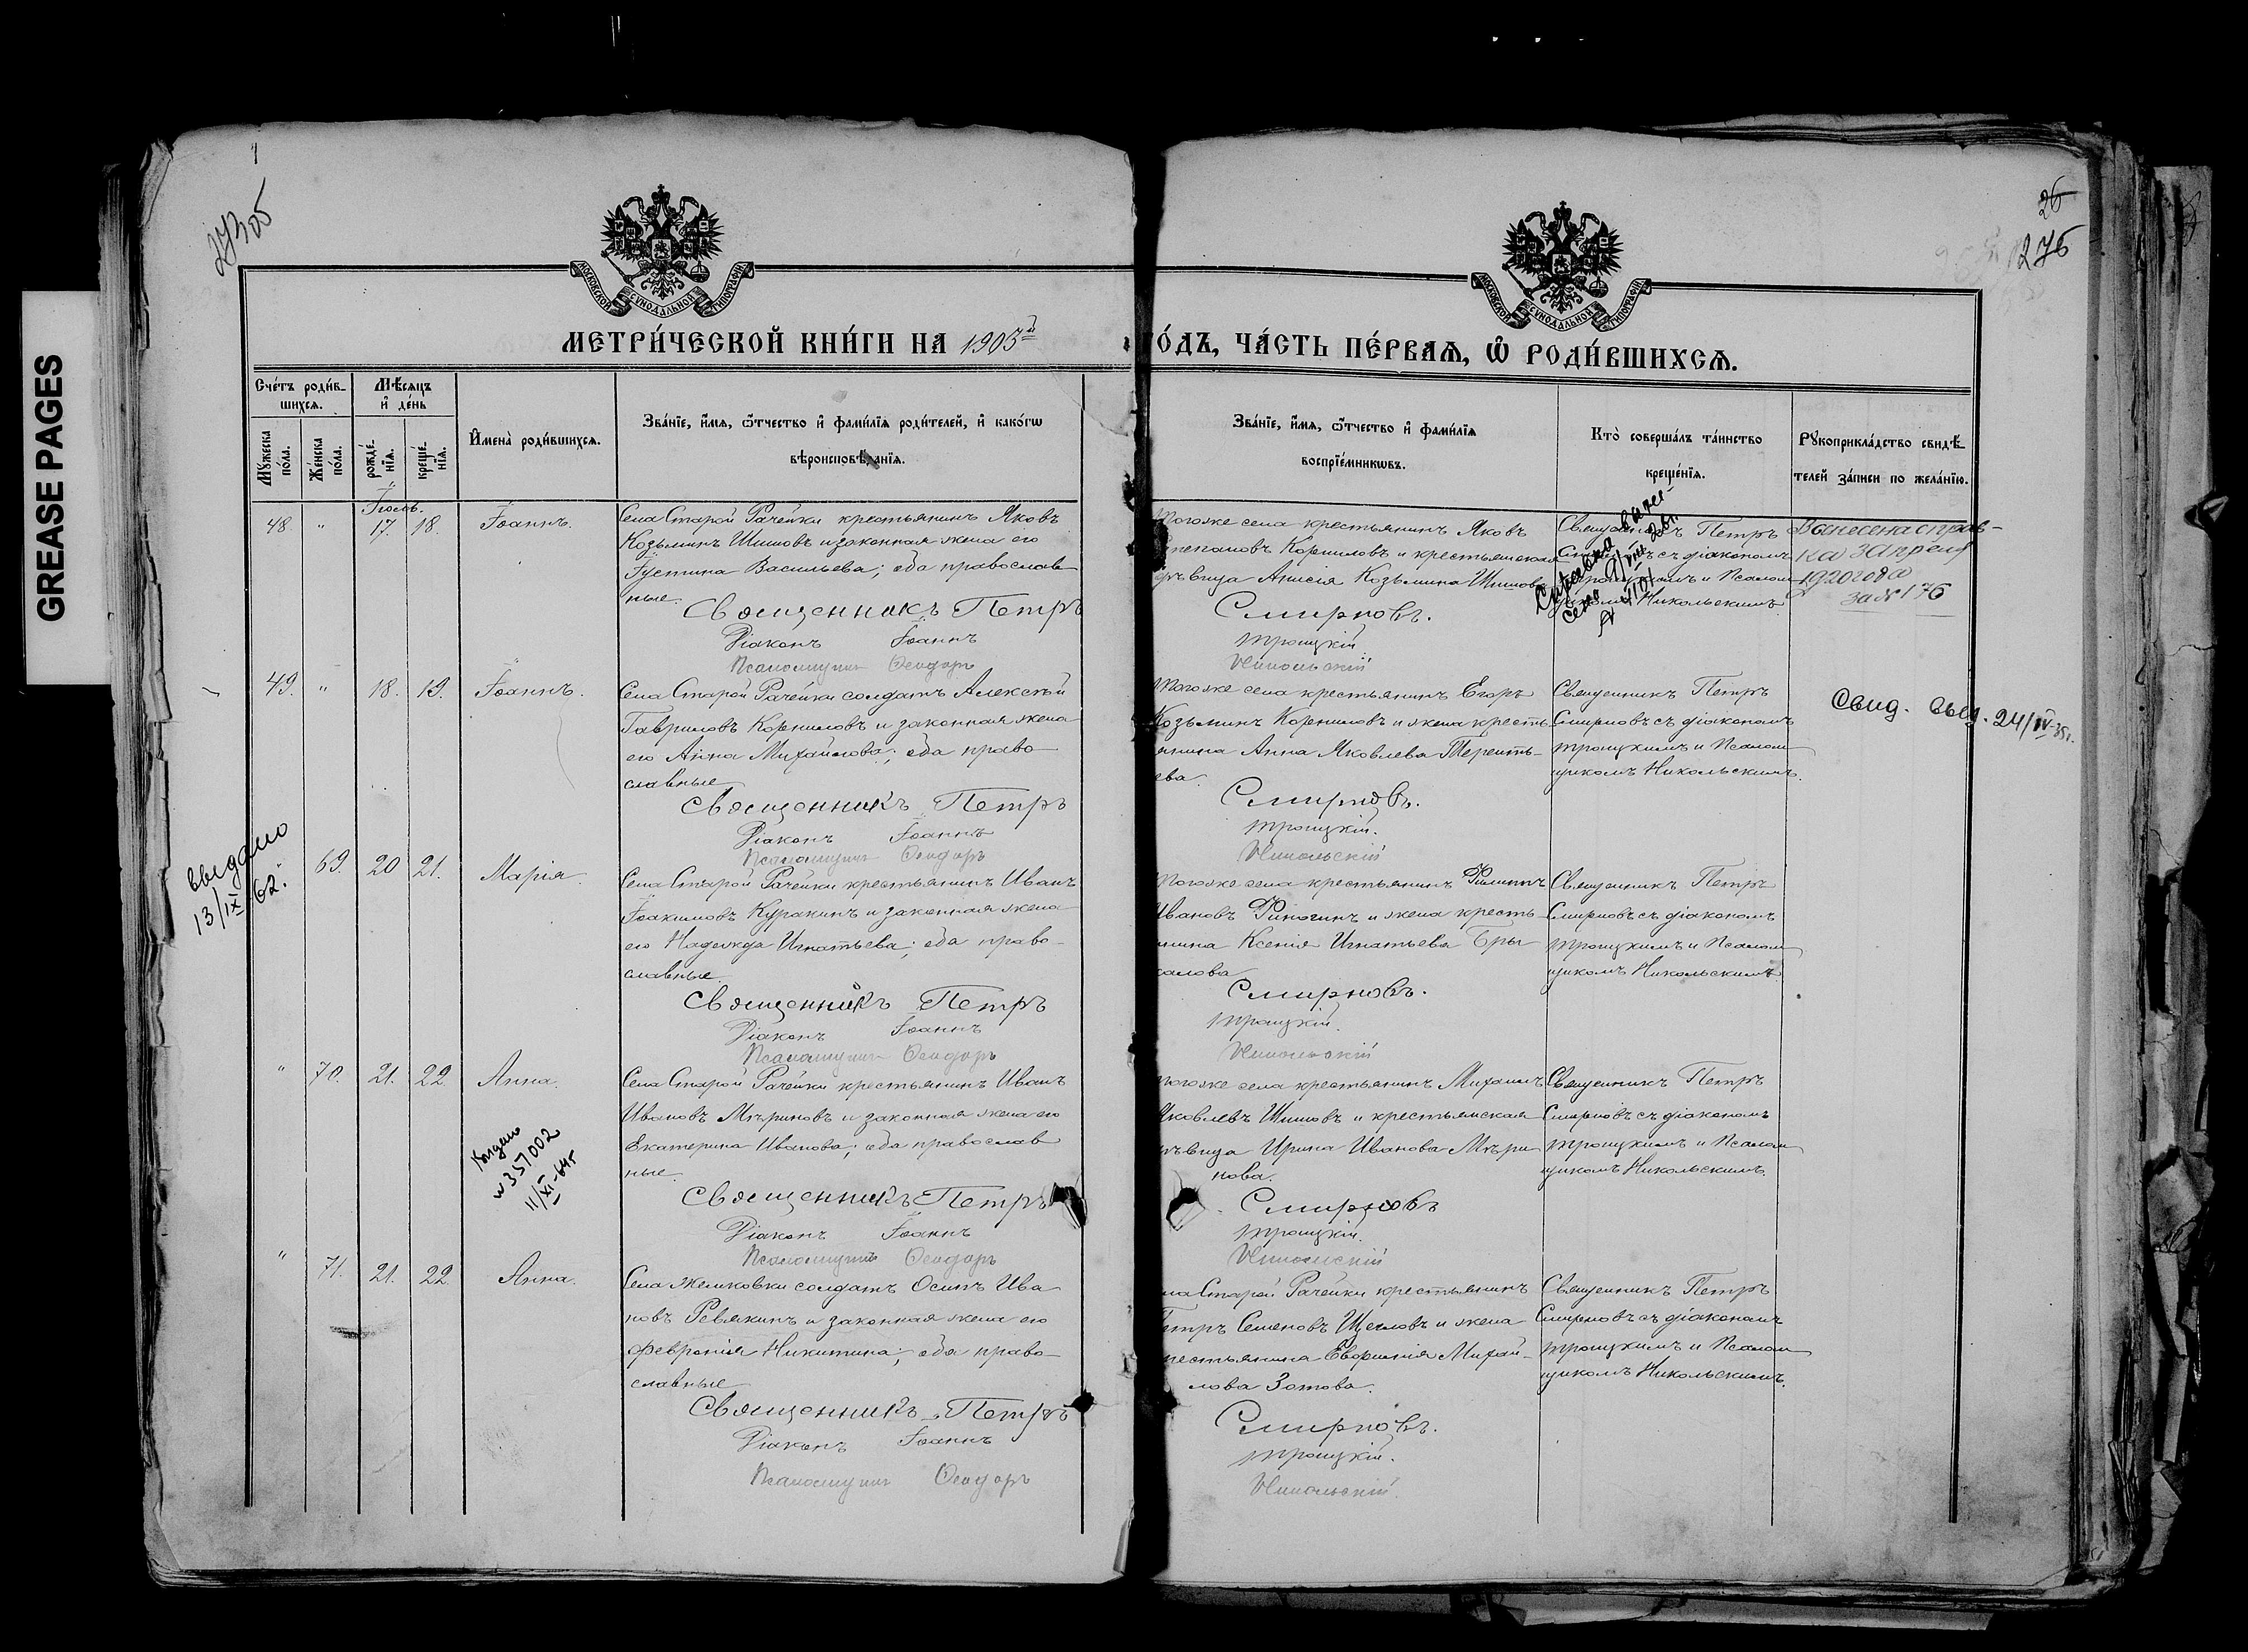 GREASE PAGES
26
276
МОСКОВСКОЙ СУНОДАЛЬНОЙ ТИПОГРАФІИ
МОСКОВСКОЙ СУНОДАЛЬНОЙ ТИПОГРАФІИ
МЕТРИ́ЧЕСКОЙ КНИ́ГИ НА 1905й
ГО́ДЪ, ЧА́СТЬ ПЕ́РВАѦ, Ѽ РОДИ́ВШИХСѦ.
Сче́тъ роди́в-
шихсѧ.
Мѣ́сѧцъ
и҆ де́нь
Мꙋ́жеска
по́ла.
Же́нска
по́ла.
рожде́-
нїѧ.
креще́-
нїѧ.
И҆мена̀ роди́вшихсѧ.
Зва́нїе, и҆́мѧ, ѻ҆́тчество и҆ фами́лїѧ роди́телей, и҆ како́гѡ
вѣроисповѣ́данїѧ.
Зва́нїе, и҆́мѧ, ѻ҆́тчество и҆ фами́лїѧ
воспрїе́мникѡвъ.
Кто̀ соверша́лъ та́инство
креще́нїѧ.
Рꙋкоприкла́дство свидѣ́-
телей за́писи по жела́нїю.
Іюль.
48. " 17. 18. Іоаннъ.
Села Старой Рачейки крестьянинъ Яковъ
Козьминъ Шишовъ и законная жена его
Іустина Васильева; оба православ
ные.
Священникъ Петръ
Діаконъ Іоаннъ
Псаломщикъ Ѳеодоръ
Тогоже села крестьянинъ Яковъ
Степановъ Корниловъ и крестьянская
дѣвица Анисія Козьмина Шишова
Смирновъ.
Троицкій
Никольскій
Священникъ Петръ
Смирновъ съ діакономъ
Троицкимъ и Псалом
щикомъ Никольскимъ.
Вынесена справ-
ка
1920 года
за № 176
49. " 18. 19. Іоаннъ.
Села Старой Рачейки солдатъ Алексѣй
Гавриловъ Корниловъ и законная жена
его Анна Михайлова; оба право
славные
Священникъ Петръ
Діаконъ Іоаннъ
Псаломщикъ Ѳеодоръ
Тогоже села крестьянинъ Егоръ
Козьминъ Корниловъ и жена кресть
янина Анна Яковлева Теренть-
ева.
Смирновъ.
Троицкій.
Никольскій
Священникъ Петръ
Смирновъ съ діакономъ
Троицкимъ и Псалом
щикомъ Никольскимъ.
Свид. выд. 24/IV-35г.
выдано
13/IX 62.
" 69. 20 21. Марія.
Села Старой Рачейки крестьянинъ Иванъ
Іоакимовъ Куракинъ и законная жена
его Надежда Игнатьева; оба право-
славные
Священникъ Петръ
Діаконъ Іоаннъ
Псаломщикъ Ѳеодоръ
Тогоже села крестьянинъ Филиппъ
Ивановъ Финогинъ и жена кресть-
янина Ксенія Игнатьева Бры
калова
Смирновъ.
Троицкій.
Никольскій
Священникъ Петръ
Смирновъ съ діакономъ
Троицкимъ и Псалом
щикомъ Никольскимъ
" 70. 21. 22 Анна.
Села Старой Рачейки крестьянинъ Иванъ
Ивановъ Мѣриновъ и законная жена его
Екатерина Иванова; оба православ
ные.
Священникъ Петръ
Діаконъ Іоаннъ
Псаломщикъ Ѳеодоръ
Тогоже села крестьянинъ Михаилъ
Яковлевъ Шишовъ и крестьянская
дѣвица Ирина Иванова Мѣри
нова.
Смирновъ
Троицкій.
Никольскій
Священникъ Петръ
Смирновъ съ діакономъ
Троицкимъ и Псалом
щикомъ Никольскимъ.
№ 357002
11/XI-64г
" 71. 21. 22 Анна.
Села Жемковки солдатъ Осипъ Ива
новъ Ревякинъ и законная жена его
Февронія Никитина; оба право-
славные
Священникъ Петръ
Діаконъ Іоаннъ
Псаломщикъ Ѳеодоръ
Села Старой Рачейки крестьянинъ
Петръ Семеновъ Щегловъ и жена
крестьянина Евфимія Михай-
лова Зотова.
Смирновъ.
Троицкій.
Никольскій.
Священникъ Петръ
Смирновъ съ діакономъ
Троицкимъ и Псалом
щикомъ Никольскимъ.